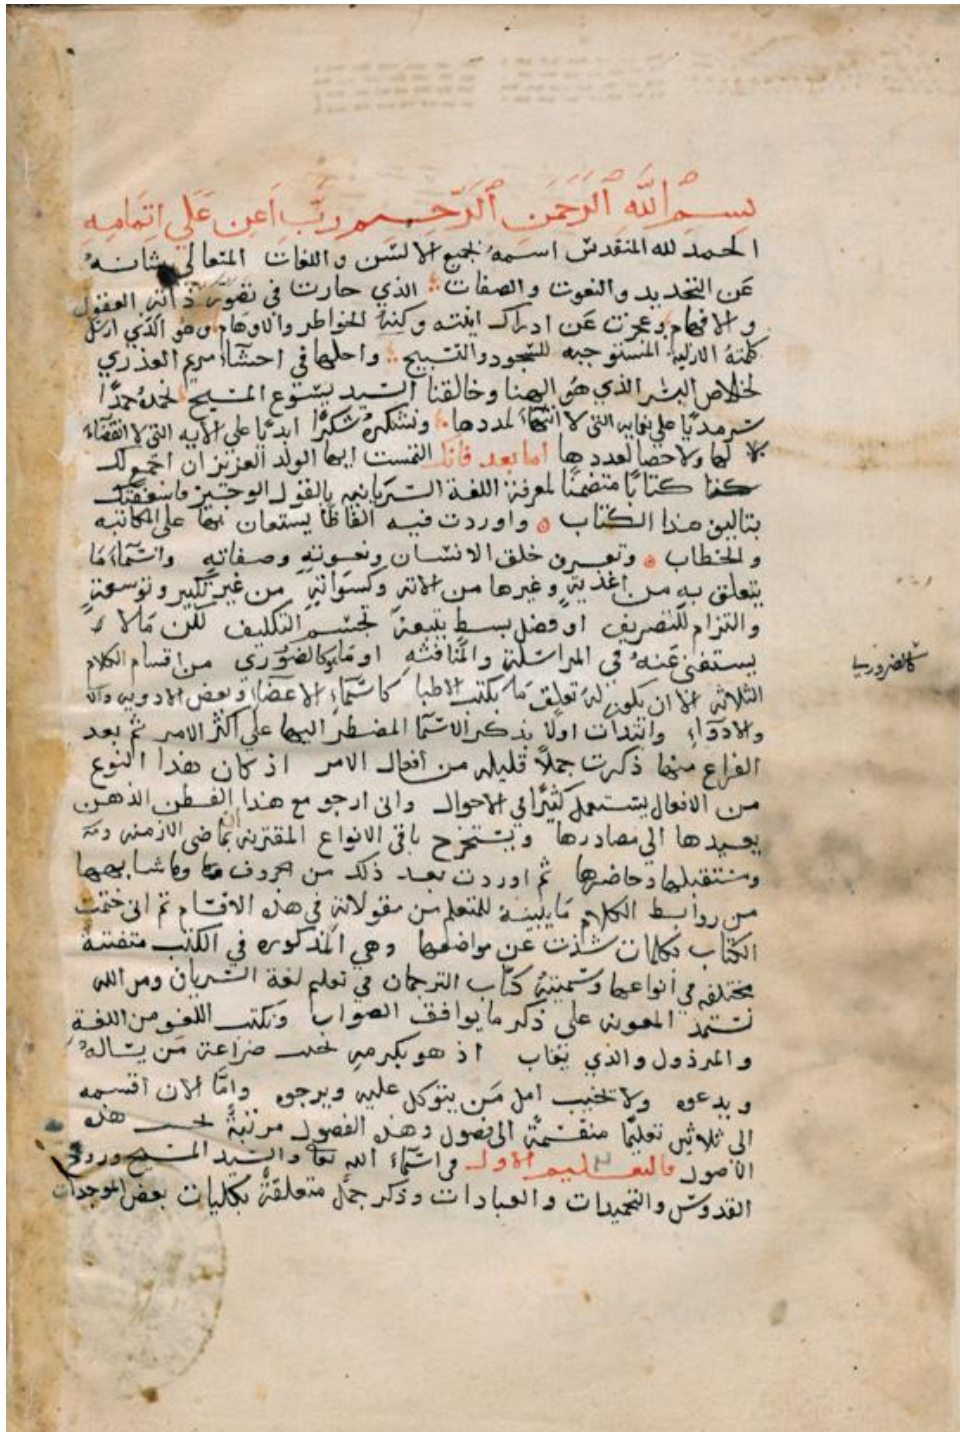 بسم الله الرحمن الرحيم رب اعن علي اتمامه
الحمد لله المتقدس اسمه بجميع الالسن واللغات المتعالي شانه
عن التحديد والنعوت والصفات الذي حارت في تصور ذاته العقول
والافهام وعجزت عن ادراك اينته وكنه الخواطر والاوهام وهو الذي ارسل
كلمته الازليه المستوجبه للسجود والتسبيح واحلها في احشاء مريم العذري
لخلاص البشر الذي هو الهنا وخالقنا السيد يسوع المسيح نحمده حمدًا
سرمديًا علي نعمايه التي لا انتهاء لمددها ونشكره شكرًا ابديًا علي الايه التي لا انقضاء
لها ولا حصا لعددها اما بعد فانك التمست ايها الولد العزيز ان اجمع لك
كتابًا متضمنًا لمعرفة اللغة السريانيه بالقول الوجيز فاسعفتك
بتاليف هذا الكتاب واوردت فيه الفاظًا يستعان بها علي المكاتبه
والخطاب وتعرف خلق الانسان ونعوته وصفاته واسماء ما
يتعلق به من اغذية وغيرها من الاته وكسواته من غير تكثير وتوسعة
والتزام للتصريف او فضل بسط بتبعة تجشم التكليف لكن مالا
يستغني عنه في المراسلة والمنافثه او ما من اقسام الكلام
كالضروريا
الثلاثه الا ان يكون له تعلق ما بكتب الاطبا كاسماء الاعضاء وبعض الادويه والا
والادواء وابتدات اولًا بذكر الاسما المضطر اليها علي اكثر الامر ثم بعد
الفراغ منها ذكرت جملًا قليله من أفعال الامر اذ كان هذا النوع
من الافعال يستعمل كثيرًا في الاحوال واني ارجو مع هذا الفطن الذهن
يعيدها الي مصادرها ويستخرج باقي الانواع المقترنه بماضي الازمنه
ومستقبلها وحاضرها ثم اوردت بعد ذلك من الحروف وما شابهها
من روابط الكلام ما يبينه للمتعلم من مقولاته في هذه الاقسام ثم اني ختمت
الكتاب بكلمات شذت عن مواضعها وهي المذكوره في الكتب متفننة
مختلفه في أنواعها وسميته كتاب الترجمان في تعليم لغة السريان ومن الله
نستمد المعونه علي ذكر ما يوافق الصواب ونكتب اللغو من اللغة
والمرذول والذي يعاب اذ هو بكرمه ضراعة من يساله
ويدعوه ولا يخيب امل من يتوكل عليه ويرجوه وامًا الان اقسمه
الي ثلاثين تعليمًا منقسمة الي فصول وهذه الفصول مرتبة هذه
الاصول فالتعليم الاول في اسماء الله تعا والسيد المسيح وروح
القدوس والتحميدات والعبادات وذكر جمل متعلقة بكليات بعض الموجدات